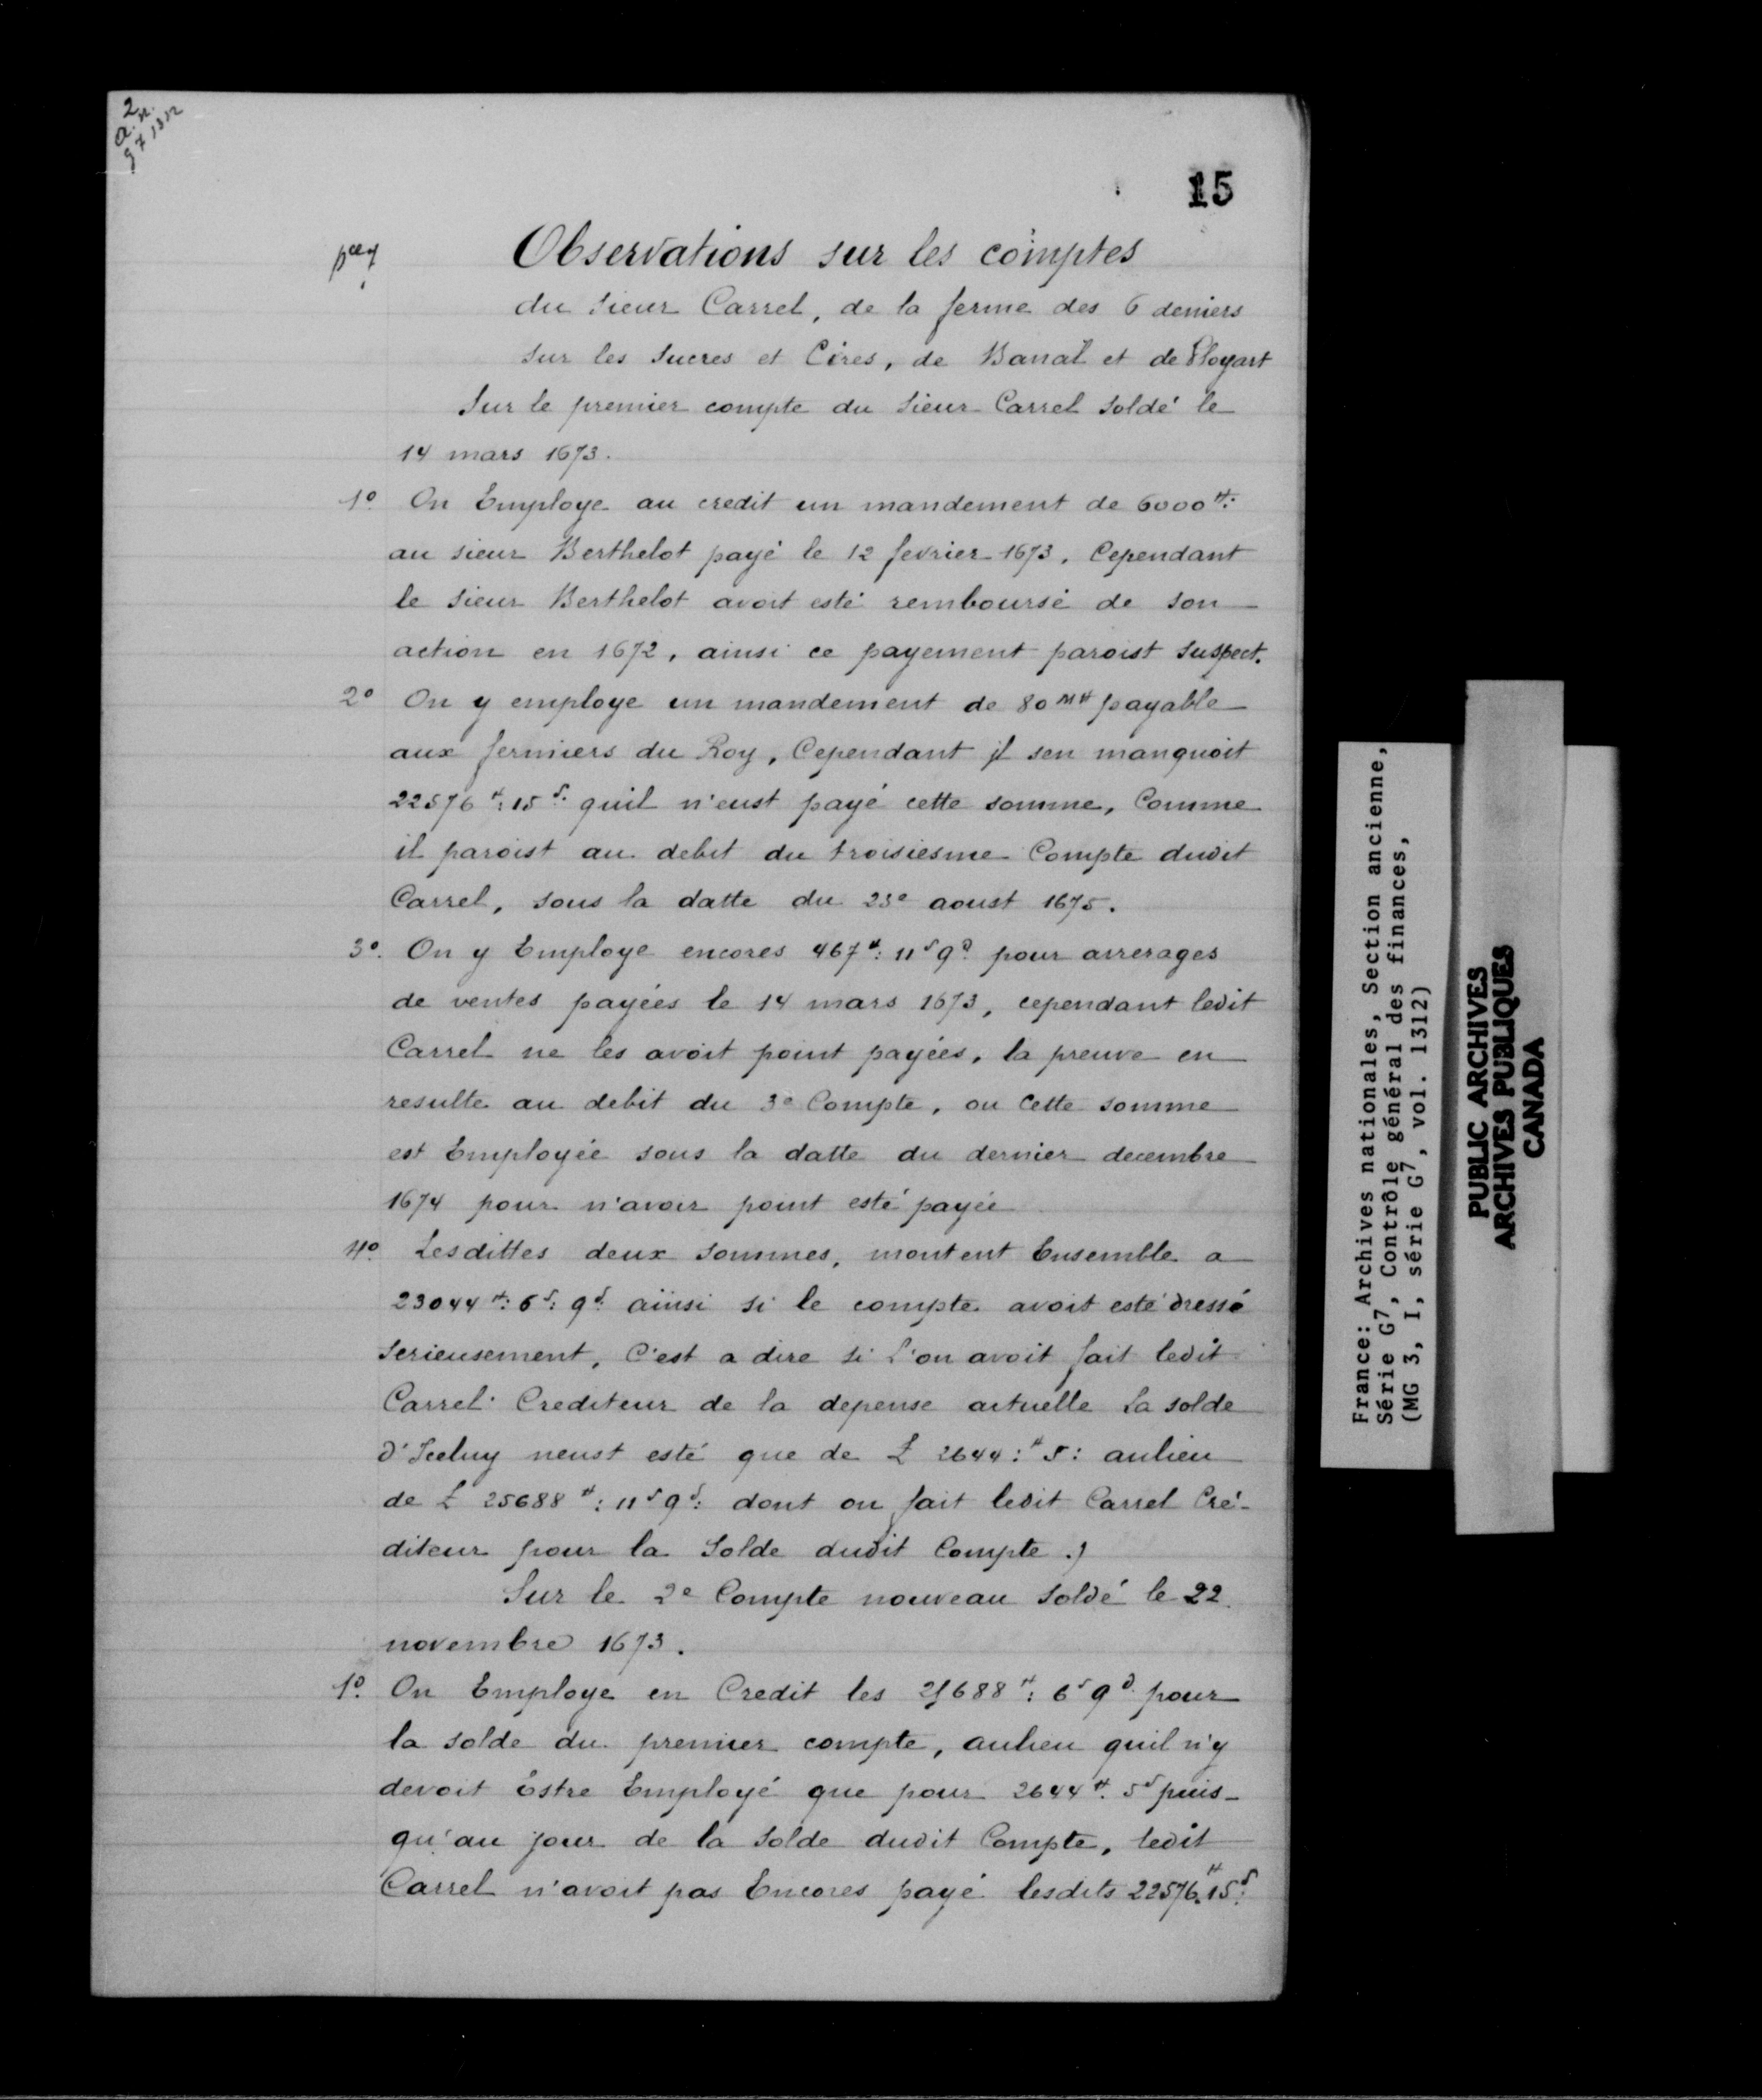 2
a. n.
g 7 1312
15
Observations sur les comptes
du Sieur Carrel, de la ferme des 6 deniers
sur les Sucres et Cires, de Banal et de Ployart
Sur le premier compte du Sieur Carrel soldé le
14 mars 1673.
1º On Employe au credit un mandement de 6000 ₶:
au sieur Berthelot payé le 12 fevrier 1673. Cependant
le Sieur Berthelot avoit esté remboursé de son
action en 1672, ainsi ce payement paroist suspect.
2º On y employe un mandement de 80 M₶ payable
aux fermiers du Roy, Cependant il sen manquoit
22576 ₶: 15 s. quil n'eust payé cette somme, Comme
il paroist au debit du troisiesme Compte dudit
Carrel, sous la datte du 23e aoust 1675.
3º. On y Employe encores 467 ₶: 11 s 9 d pour arrerages
de ventes payées le 14 mars 1673, cependant ledit
Carrel ne les avoit point payées, la preuve en
resulte au debit du 3e Compte, ou Cette somme
est Employée sous la datte du dernier decembre
1674 pour n'avoir point esté payée
4º. Lesdittes deux sommes, montent Ensemble a
23044 ₶: 6 s: 9 d: ainsi si le compte avoit esté dressé
serieusement, C'est a dire si l'on avoit fait ledit
Carrel Crediteur de la depense actuelle la solde
d'Iceluy neust esté que de £ 2644: ₶ 5: aulieu
de £ 25688 ₶: 11 s 9 d: dont on fait ledit Carrel Cré-
diteur pour la Solde dudit Compte.)
Sur le 2e Compte nouveau soldé le 22
novembre 1673.
1º. On Employe en Credit les 25688 ₶: 6 s 9 d pour
la solde du premier compte, aulieu quil n'y
devoit Estre Employé que pour 2644 ₶. 5 s puis-
qu'au jour de la Solde dudit Compte, ledit
Carrel n'avoit pas Encores payé lesdits 22576 ₶. 15 s:
France: Archives nationales, Section ancienne,
Série G7, Contrôle général des finances,
(MG 3, I, série G7, vol. 1312)
PUBLIC ARCHIVES
ARCHIVES PUBLIQUES
CANADA